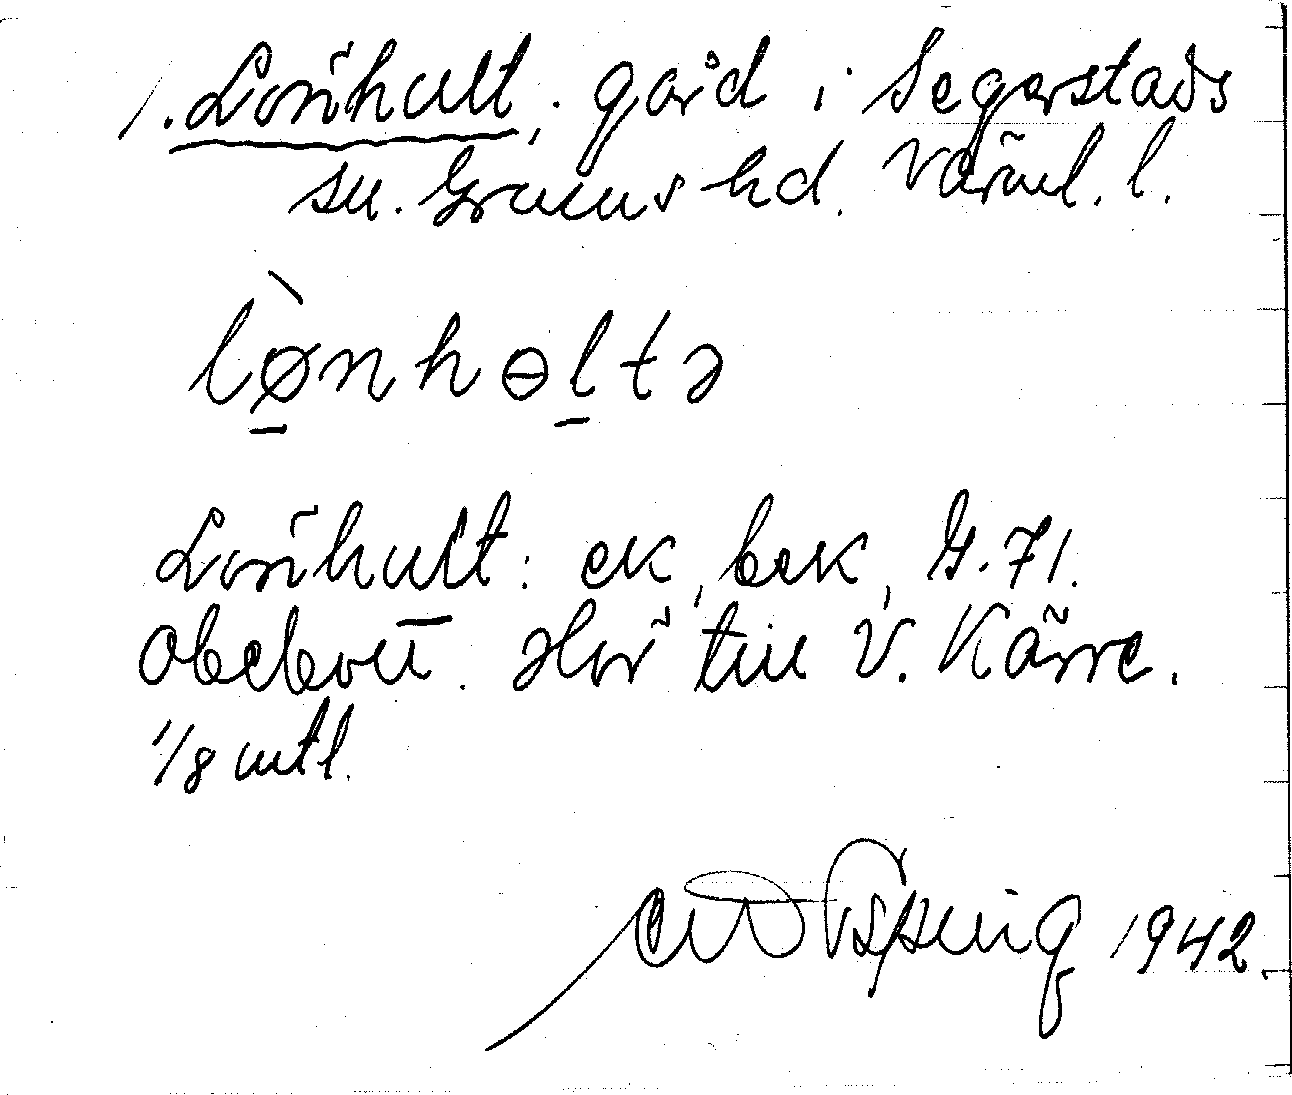 1. Lönhult, gård i Segerstads
sn. Grums hd. Värml. l.
lø̀nhɵltə
Lönhult: ek, bek, G. 71.
Obebott. Hör till V. Kärre.
1/8 mtl.
1942